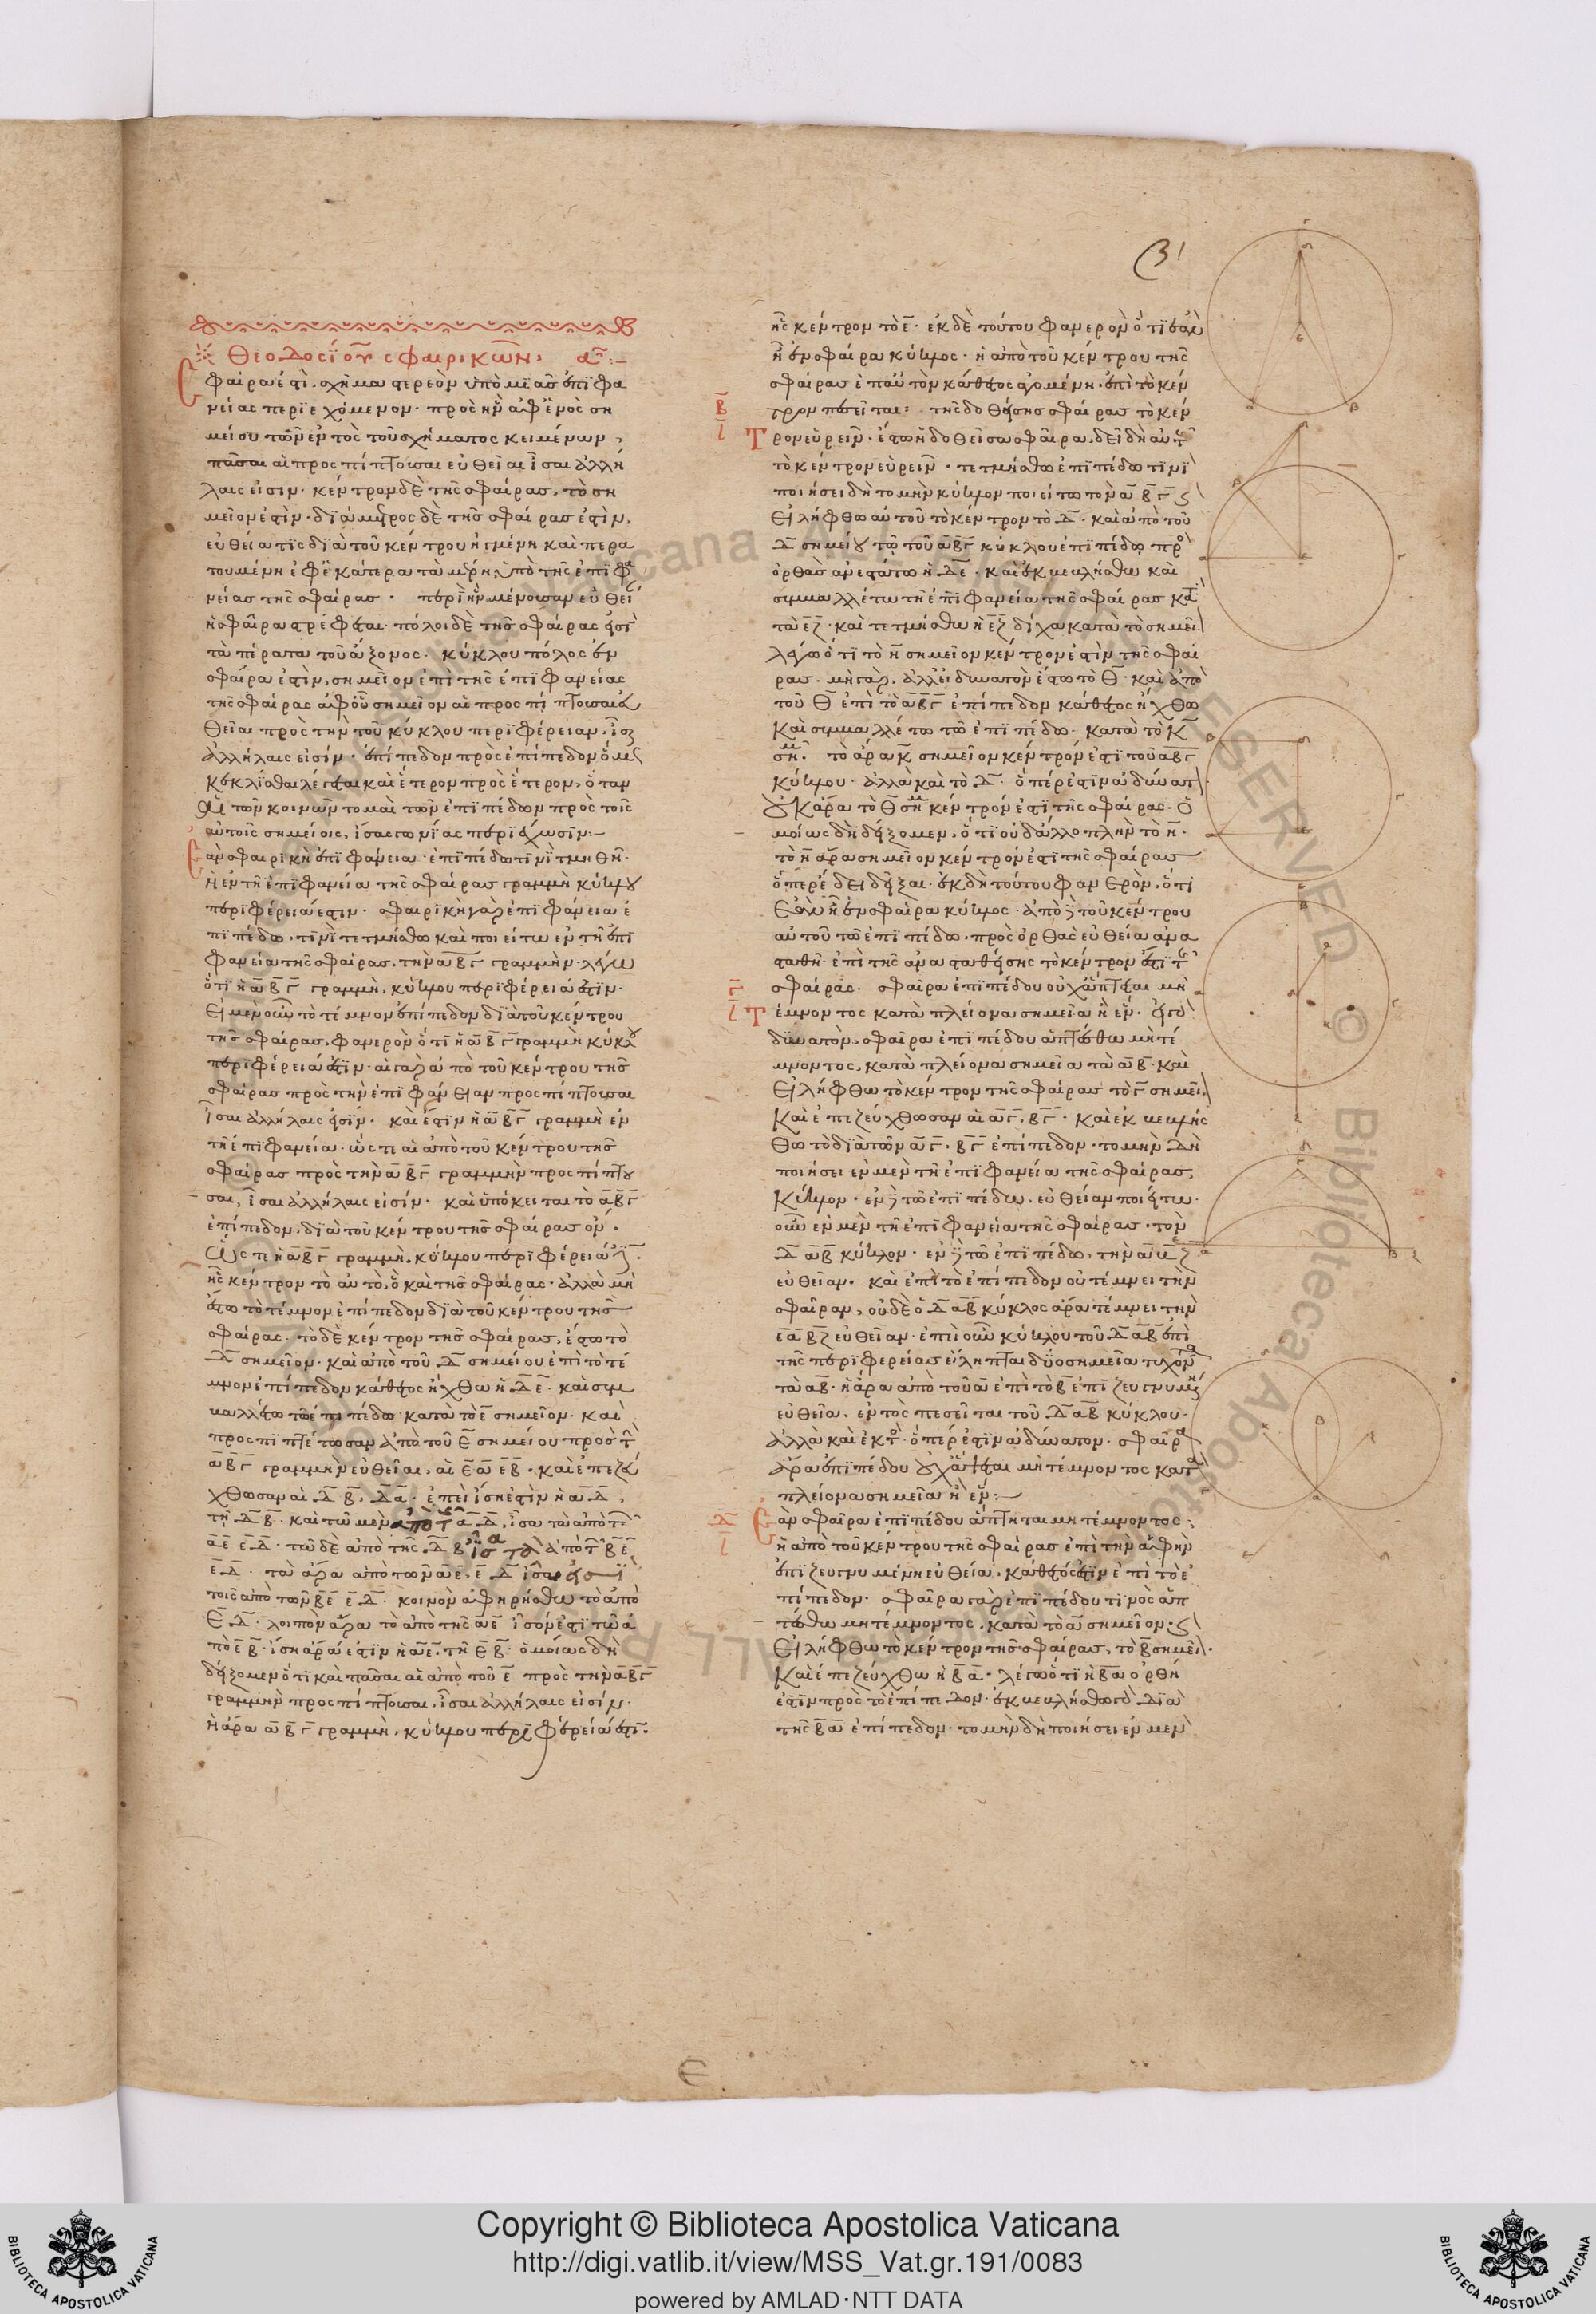 Θεοδοσίου σφαιρικῶν. α:-
φαῖρα ἐστὶ σχῆμα στερεὸν ὑπὸ μιᾶς ἐπιφα
νείας περιεχόμενον· πρὸς ἣν ἀφ' ἑνὸς ση
μείου τῶν ἐντὸς τοῦ σχήματος κειμένων,
πᾶσαι αἱ προσπίπτουσαι εὐθεῖαι ἴσαι ἀλλή
λαις εἰσιν· κέντρον δὲ τῆς σφαίρας, τὸ ση
μεῖον ἐστὶν· διάμετρος δὲ τῆς σφαίρας ἐστὶν,
εὐθεῖα τὶς διὰ τοῦ κέντρου ἠγμένη καὶ περα
τουμένη ἐφ' ἑκάτερα τὰ μέρη ὑπὸ τῆς ἐπιφα
νείας τῆς σφαίρας· περὶ ἣν μένουσαν εὐθεῖ
ἡ σφαῖρα στρέφεται· πόλοι δὲ τῆς σφαίρας εἰσὶ
τὰ πέρατα τοῦ ἄξονος· κύκλου πόλος ἐν
σφαίρα ἐστὶν, σημεῖον ἐπὶ τῆς ἐπιφανείας
τῆς σφαίρας ἀφ' οὗ σημεῖον αἱ προσπίπτουσαι εὐ
θεῖαι πρὸς τὴν τοῦ κύκλου περιφέρειαν, ἴσαι
ἀλλήλαις εἰσίν· ἐπίπεδον πρὸς ἐπίπεδον ὁμοί
κεκλίσθαι λέγεται καὶ ἕτερον πρὸς ἕτερον, ὅταν
αἱ τῶν κοινῶν τομαὶ τῶν ἐπιπέδων πρὸς τοῖς
αὐτοῖς σημείοις, ἴσας γωνίας περιέχωσιν:-
ὰν σφαιρικὴ ἐπιφάνεια ἐπιπέδω τινὶ τμηθῆ·
ἡ ἐν τῆ ἐπιφανεία τῆς σφαίρας γραμμὴ κύκλου
περιφέρειά ἐστιν· σφαιρικὴ γὰρ ἐπιφάνεια ἐ
πιπέδω τινὶ τετμήσθω καὶ ποιείτω ἐν τῆ ἐπι
φανεία τῆς σφαίρας, τὴν αβγ γραμμὴν· λέγω
ὅτι ἡ αβγ γραμμὴ, κύκλου περιφέρειά ἐστιν·
Εἰ μὲν οὖν τὸ τέμνον ἐπίπεδον διὰ τοῦ κέντρου
τῆς σφαίρας, φανερὸν ὅτι ἡ αβγ γραμμὴ κύκλου
περιφέρειά ἐστιν· αἱ γὰρ ἀπὸ τοῦ κέντρου τῆς
σφαίρας πρὸς τὴν ἐπιφάνειαν προσπίπτουσαι
ἴσαι ἀλλήλαις εἰσίν· καὶ ἐστιν ἡ αβγ γραμμὴ ἐν
τῆ ἐπιφανεία· ὥστε αἱ ἀπὸ τοῦ κέντρου τῆς
σφαίρας πρὸς τὴν αβγ γραμμὴν προσπίπτου
σαι, ἴσαι ἀλλήλαις εἰσίν· καὶ ὑπόκειται τὸ αβγ
ἐπίπεδον, διὰ τοῦ κέντρου τῆς σφαίρας ὄν·
ὥστε ἡ αβγ γραμμὴ, κύκλου περιφέρειά ἐστιν·
ἧς κέντρον τὸ αὐτὸ, ὃ καὶ τῆς σφαίρας· ἀλλὰ μὴ
ἔστω τὸ τέμνον ἐπίπεδον διὰ τοῦ κέντρου τῆς
σφαίρας· τὸ δὲ κέντρον τῆς σφαίρας, ἔστω τὸ
Δ σημεῖον· καὶ ἀπὸ τοῦ Δ σημείου ἐπὶ τὸ τέ
μνον ἐπίπεδον κάθετος ἤχθω ἡ Δε· καὶ συμ
βαλλέτω τῶ ἐπιπέδω κατὰ τὸ ε σημεῖον· καὶ
προσπιπτέτωσαν ἀπὸ τοῦ ε σημείου πρὸς τὴν
αβγ γραμμὴν εὐθεῖαι, αἱ εα εβ· καὶ ἐπεζεύ
χθωσαν αἱ Δβ, Δα· ἐπεὶ ἴση ἐστὶν ἡ αΔ,
τῆ Δβ· καὶ τῶ μὲν ἀπὸ τῆς αΔ, ἴσα τὰ ἀπὸ τῆς
αε εΔ· τῶ δὲ ἀπὸ τῆς Δβ ἴσα τὰ ἀπὸ τῆς βε
εΔ· τὰ ἄρα ἀπὸ τῶν αε, εΔ ἴσα ἐστὶ
τοῖς ἀπὸ τῶν βε εΔ· κοινὸν ἀφηρήσθω τὸ ἀπὸ
εΔ· λοιπὸν ἄρα τὸ ἀπὸ τῆς αε ἴσόν ἐστι τῶ ἀ
πὸ εβ· ἴση ἄρα ἐστὶν ἡ αε τῆ εβ· ὁμοίως δὴ
δείξομεν ὅτι καὶ πᾶσαι αἱ ἀπὸ τοῦ ε πρὸς τὴν αβγ
γραμμὴν προσπίπτουσαι, ἴσαι ἀλλήλαις εἰσίν·
ἡ ἄρα αβγ γραμμὴ, κύκλου περιφέρειά ἐστι·
ἧς κέντρον τὸ ε· ἐκ δὲ τούτου φανερὸν ὅτι ἐὰν
ἦ ἐν σφαίρα κύκλος· ἡ ἀπὸ τοῦ κέντρου τῆς
σφαίρας ἐπ' αὐτὸν κάθετος ἀγομένη, ἐπὶ τὸ κέν
τρον πεσεῖται: τῆς δοθείσης σφαίρας τὸ κέν
β
Τ ρον εὑρεῖν· ἔστω ἡ δοθεῖσα σφαῖρα, δεῖ δὴ αὐτῆς
τὸ κέντρον εὑρεῖν· τετμήσθω ἐπιπέδω τινὶ
ποιήσει δὴ τομὴν κύκλον ποιείτω τὸν αβγ
Εἰλήφθω αὐτοῦ τὸ κέντρον τὸ Δ· καὶ ἀπὸ τοῦ
Δ σημείου τῶ τοῦ αβγ κύκλου ἐπιπέδω πρὸς
ὀρθὰς ἀνεστάτω ἡ Δε· καὶ ἐκβεβλήσθω καὶ
συμβαλλέτω τῆ ἐπιφανεία τῆς σφαίρας κατὰ
τὰ εζ· καὶ τετμήσθω ἡ εζ δίχα κατὰ τὸ σημεῖ
λέγω ὅτι τὸ η σημεῖον κέντρον ἐστὶν τῆς σφαί
ρας· μὴ γὰρ, ἀλλ' εἰ δυνατὸν ἔστω τὸ θ· καὶ ἀπὸ
τοῦ θ ἐπὶ τὸ αβγ ἐπίπεδον κάθετος ἤχθω
καὶ συμβαλλέτω τῶ ἐπιπέδω κατὰ τὸ κ
σημ. τὸ ἄρα κ σημεῖον κέντρον ἐστὶ τοῦ αβγ
κύκλου· ἀλλὰ καὶ τὸ Δ· ὅπερ ἐστὶν ἀδύνατ
οὐκ ἄρα τὸ θ σημ κέντρον ἐστὶ τῆς σφαίρας· ὁ
μοίως δὴ δείξομεν, ὅτι οὐδ' ἄλλο πλὴν τὸ η·
τὸ η ἄρα σημεῖον κέντρον ἐστὶ τῆς σφαίρας
ὅπερ ἔδει δεῖξαι· ἐκ δὴ τούτου φανερὸν, ὅτι
Ἐὰν ἦ ἐν σφαίρα κύκλος· ἀπὸ δὲ τοῦ κέντρου
αὐτοῦ τῶ ἐπιπέδω, πρὸς ὀρθὰς εὐθεῖα ἀνα
σταθῆ· ἐπὶ τῆς ἀνασταθείσης τὸ κέντρον ἐστὶ τῆς
γ
σφαίρας. σφαῖρα ἐπιπέδου οὐχ ἅπτεται μὴ
Τ έμνοντος κατὰ πλείονα σημεῖα ἢ ἕν· εἰ γὰρ
δυνατὸν, σφαῖρα ἐπιπέδου ἁπτέσθω μὴ τέ
μνοντος, κατὰ πλείονα σημεῖα τὰ αβ· καὶ
Εἰλήφθω τὸ κέντρον τῆς σφαίρας τὸ γ σημεῖ
Καὶ ἐπεζεύχθωσαν αἱ αγ, βγ· καὶ ἐκβεβλήσ
θω τὸ διὰ τῶν αγ, βγ ἐπίπεδον· τομὴν δὴ
ποιήσει ἐν μὲν τῆ ἐπιφανεία τῆς σφαίρας,
κύκλον· ἐν δὲ τῶ ἐπιπέδω, εὐθεῖαν ποιείτω·
οὖν ἐν μὲν τῆ ἐπιφανεία τῆς σφαίρας, τὸν
Δαβ κύκλον· ἐν δὲ τῶ ἐπιπέδω, τὴν
εὐθεῖαν· καὶ ἐπεὶ τὸ ἐπίπεδον οὐ τέμνει τὴν
σφαῖραν, οὐδὲ ὁ Δαβ κύκλος ἄρα τέμνει τὴν
εαβζ εὐθεῖαν· ἐπεὶ οὖν κύκλου τοῦ Δαβ ἐπὶ
τῆς περιφερείας εἴληπται δύο σημεῖα τυχόντα
τὰ αβ· ἡ ἄρα ἀπὸ τοῦ α ἐπὶ τὸ β ἐπιζευγνυμένη
εὐθεῖα, ἐντὸς πεσεῖται τοῦ Δαβ κύκλου·
ἀλλὰ καὶ ἐκτός· ὅπερ ἐστὶν ἀδύνατον· σφαῖρα
ἄρα ἐπιπέδου οὐχ ἅπτεται μὴ τέμνοντος κατὰ
πλείονα σημεῖα ἢ ἕν:-
Δ
Ἐ ὰν σφαῖρα ἐπιπέδου ἅπτηται μὴ τέμνοντος·
ἡ ἀπὸ τοῦ κέντρου τῆς σφαίρας ἐπὶ τὴν ἁφὴν
ἐπιζευγνυμένη εὐθεῖα, κάθετός ἐστιν ἐπὶ τὸ ἐ
πίπεδον· σφαῖρα γὰρ ἐπιπέδου τινὸς ἁπ
τέσθω μὴ τέμνοντος, κατὰ τὸ α σημεῖον·
Εἰλήφθω τὸ κέντρον τῆς σφαίρας, τὸ β σημεῖ
Καὶ ἐπεζεύχθω ἡ βα· λέγω ὅτι ἡ βα ὀρθή
ἐστιν πρὸς τὸ ἐπίπεδον· ἐκβεβλήσθω τὸ διὰ
τῆς βα ἐπίπεδον· τομὴν δὴ ποιήσει ἐν μὲν
ε
Copyright © Biblioteca Apostolica Vaticana
http://digi.vatlib.it/view/MSS_Vat.gr.191/0083
powered by AMLAD·NTT DATA
BIBLIOTECA APOSTOLICA VATICANA
BIBLIOTECA APOSTOLICA VATICANA